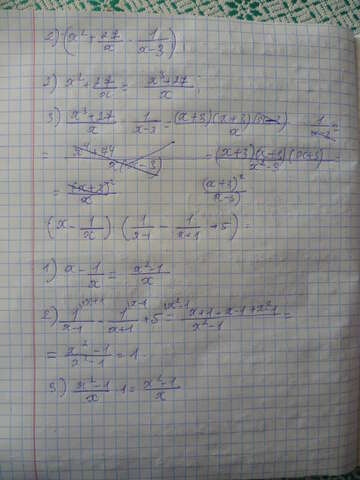 2) (x² + 27/x · 1/(x-3))
2) x² + 27/x = (x³+27)/x ;
3) (x³+27)/x · 1/(x-3) = (x+3)(x+3)(x-3)/x · 1/(x-3) =
= = (x+3)(x-3)(x+3)/(x²-9) =
= (x+3)²/x (x+3)²/(x-3)
(x - 1/x) · (1/(x-1) - 1/(x+1) + 5) =
1) x - 1/x = (x²-1)/x
2) 1/(x-1) - 1/(x+1) + 5 = (x+1-x-1+x²-1)/(x²-1) =
= (x²-1)/(x²-1) = 1.
3) (x²-1)/x · 1 = (x²-1)/x